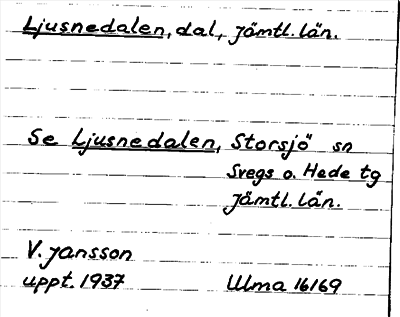 Ljusnedalen, dal, Jämtl. län.
Se Ljusnedalen, Storsjö sn
Svegs o. Hede tg
Jämtl. län.
V. Jansson
uppt. 1937 Ulma 16169